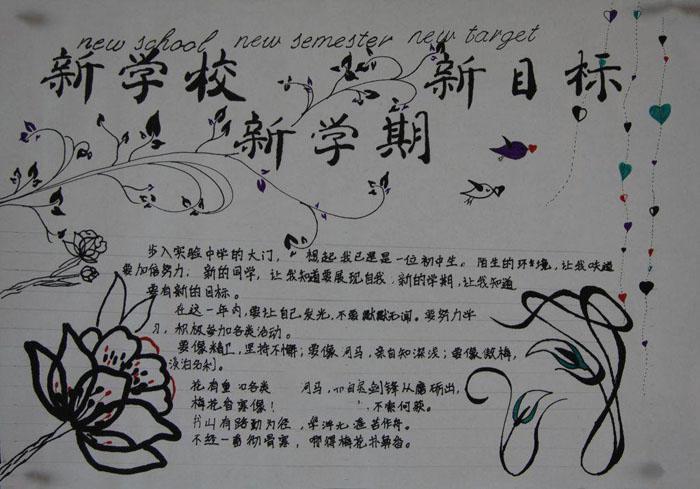 new school new semester new target
新学校 新目标
新学期
步入实验中学的大门, 想起我已是是一位初中生。陌生的环境,让我知道
要加倍努力, 新的同学,让我知道要展现自我,新的学期,让我知道
要有新的目标。
在这一年内,要让自己发光,不要默默无闻。要努力学
习,积极参加各类活动。
要像精卫,坚持不懈;要像河马,亲自知深浅;要像傲梅,
淡泊名利。
花有重 各类 河马, 宝剑锋从磨砺出,
梅花自寒 不 何获。
书山有路勤为径,学海无涯苦作舟。
不经一番彻骨寒,哪得梅花扑鼻香。